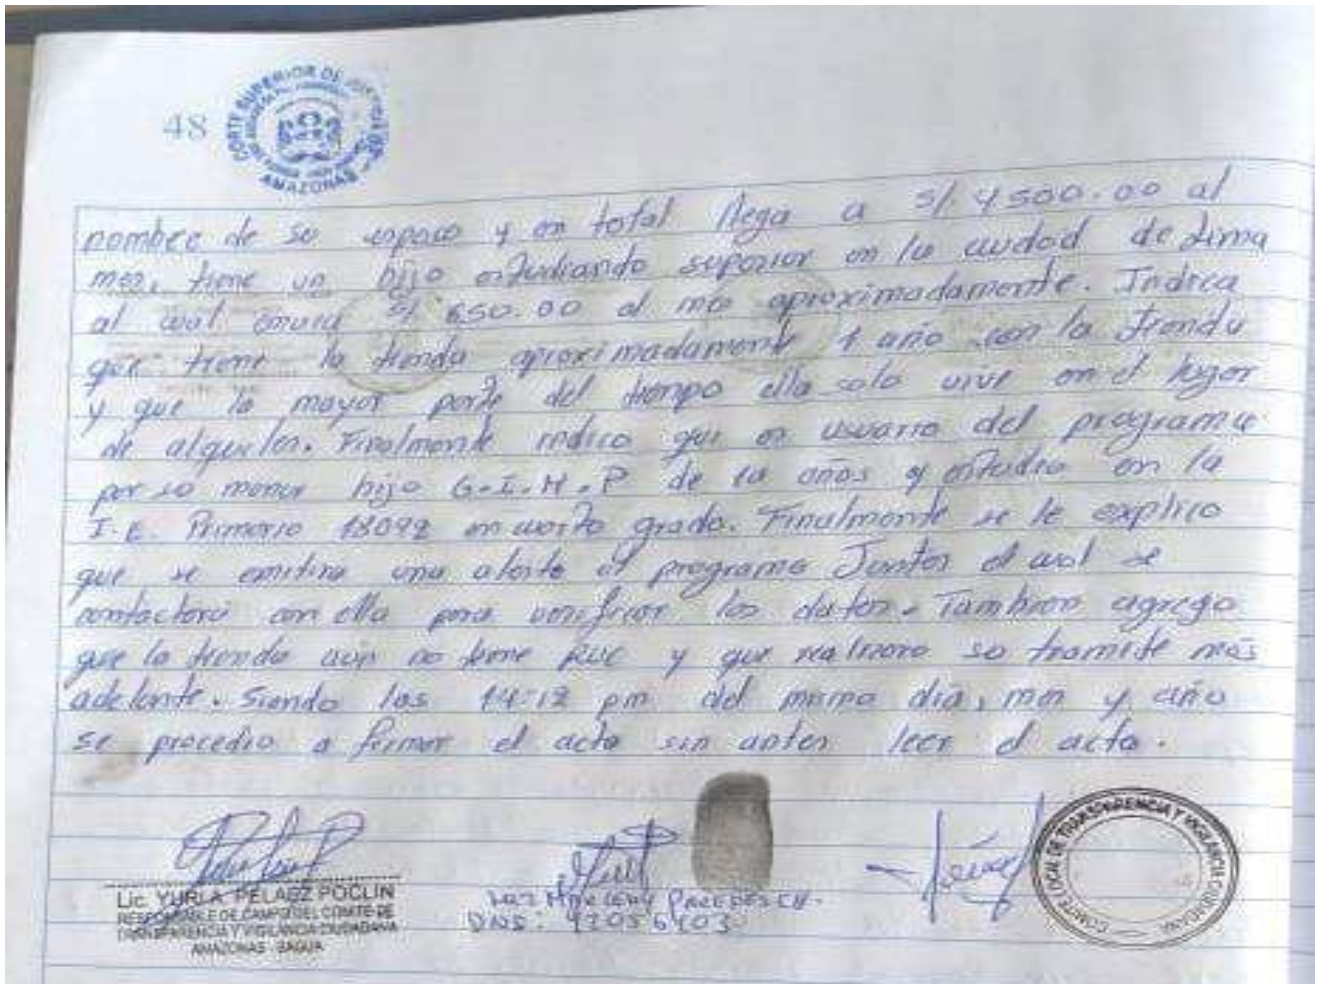 48
CORTE SUPERIOR DE JUSTICIA DE
AMAZONAS
nombre de su esposo y en total llega a S/. 4500.00 al
mes, tiene un hijo estudiando superior en la ciudad de Lima
al cual envia S/ 650.00 al mes aproximadamente. Indica
que tiene la tienda aproximadamente 1 año con la tienda
y que la mayor parte del tiempo ella solo vive en el lugar
de alquiler. Finalmente indico que es usuaria del programa
por su menor hijo G.I.H.P de 10 años y estudia en la
I.E. Primaria 18092 en cuarto grado. Finalmente se le explico
que se emitira una alerta al programa Juntos el cual se
contactara con ella para verificar los datos. Tambien agrego
que la tienda aun no tiene RUC y que realizara su tramite más
adelante. Siendo las 14:12 pm del mismo dia, mes y año
se procedio a firmar el acta sin antes leer el acta.
Lic. YURI A. PELAEZ POCLIN
RESPONSABLE DE CAMPO DEL COMITE DE
TRANSPARENCIA Y VIGILANCIA CIUDADANA
AMAZONAS - BAGUA
Paredes CH.
DNI:
COMITE LOCAL DE TRANSPARENCIA Y VIGILANCIA CIUDADANA